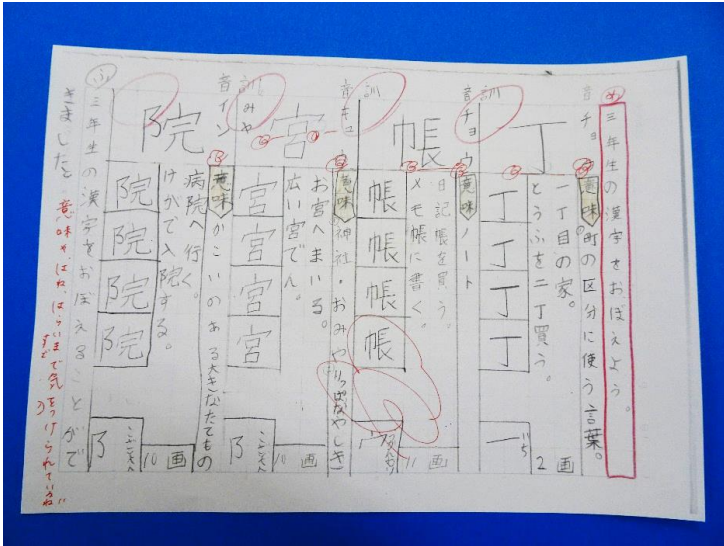 め 三年生の漢字をおぼえよう。
丁
音チョウ
訓
意味 町の区分に使う言葉。
一丁目の家。
とうふを二丁買う。
丁 丁 丁 丁
2画
帳
音チョウ
訓
意味 ノート
日記帳を買う。
メモ帳に書く。
帳 帳 帳 帳
11画
宮
音キュウ
訓みや
意味 神社・おみや りっぱなやしき
お宮へまいる。
広い宮でん。
宮 宮 宮 宮
10画
院
音イン
意味 かこいのある大きなたてもの
病院へ行く。
けがで入院する。
院 院 院 院
10画
ふ 三年生の漢字をおぼえることがで
きました。
意味や、はね、はらいまで気をつけられているね